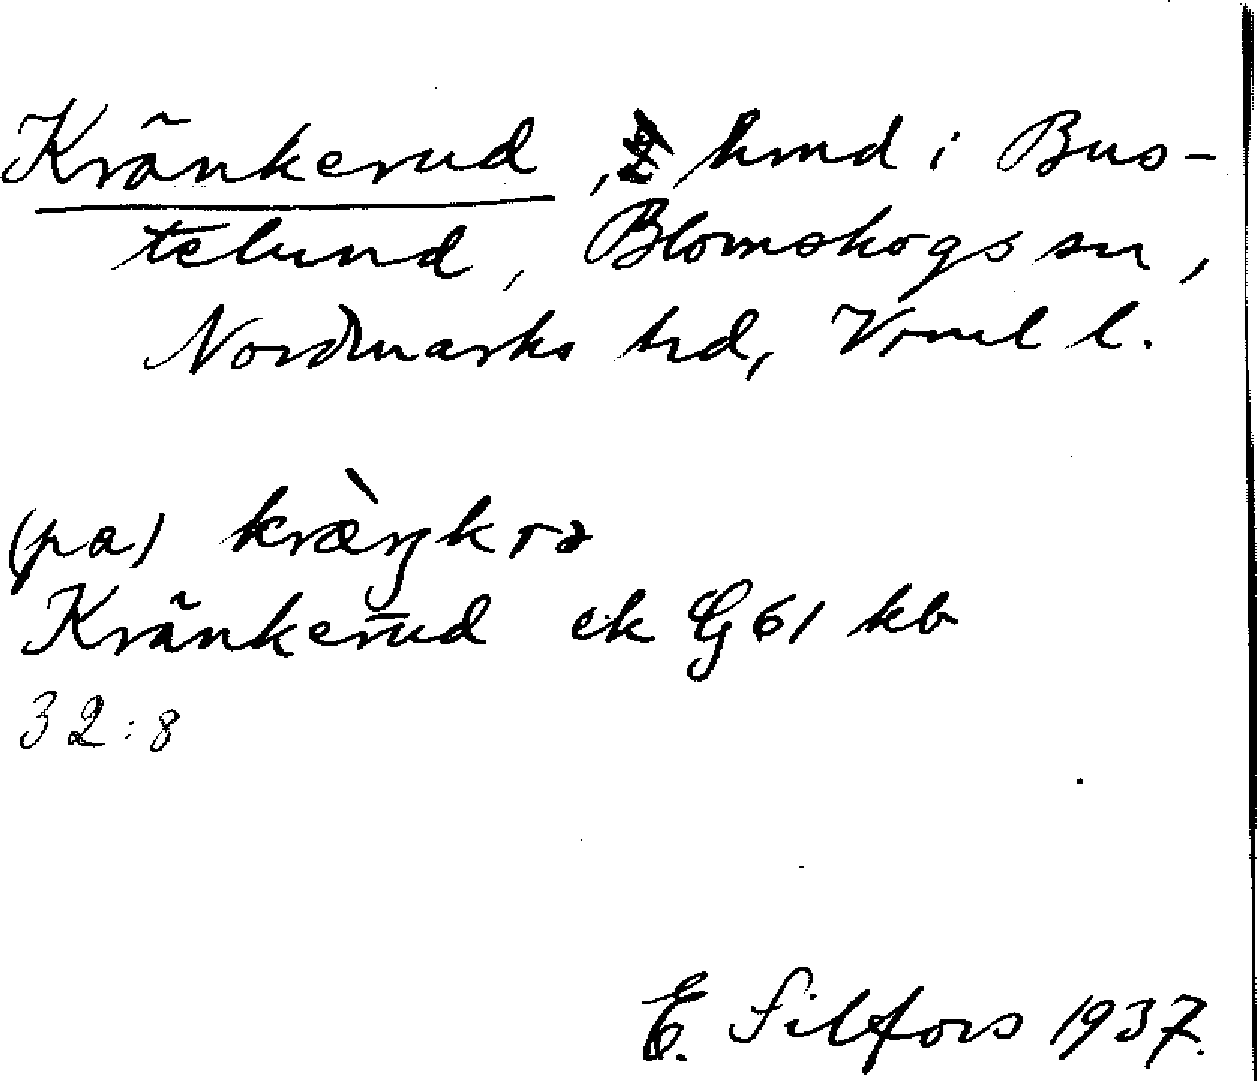 Kränkerud, hmd i Bus-
telund, Blomskogs sn,
Nordmarks hd, Vrml l.
(pa) kræ̀ŋkrə
Kränkerud ek G 61 kb
32:8
E. Silfors 1937.